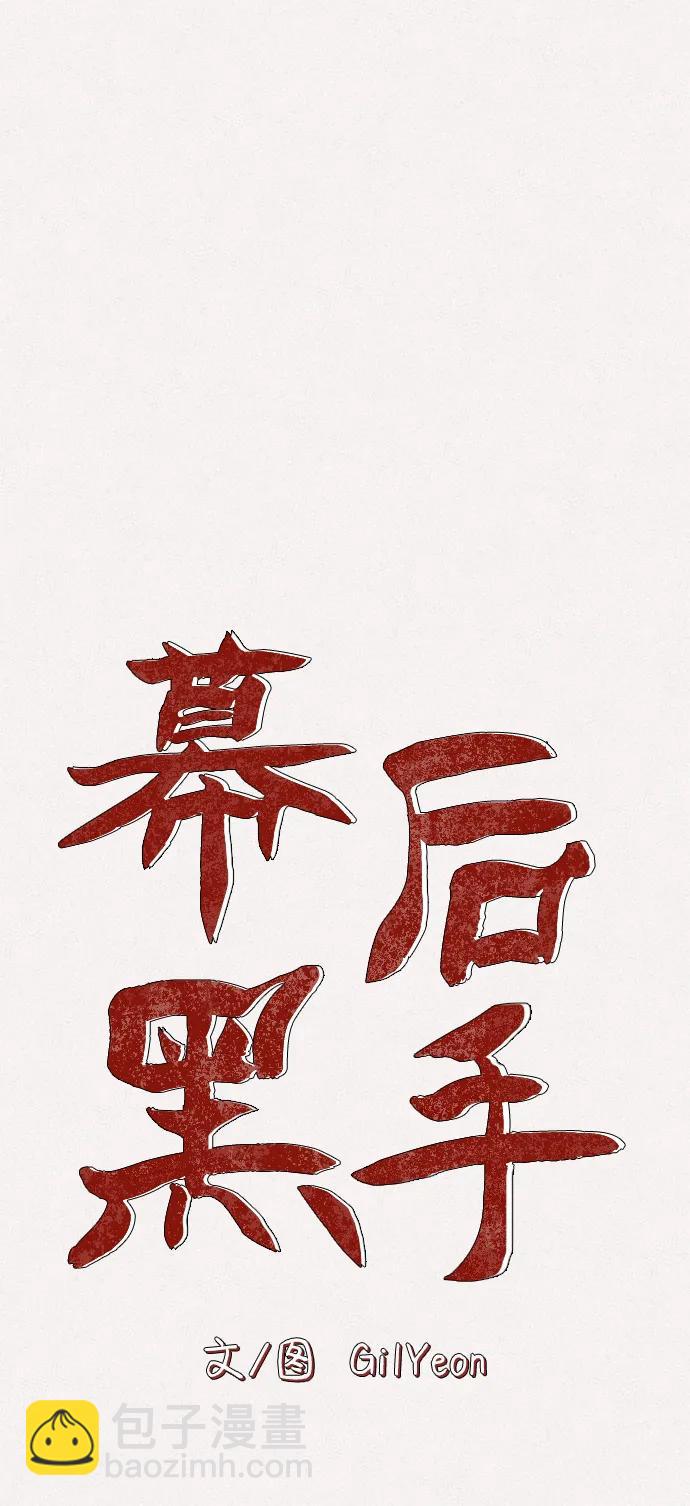 幕后
黑手
文/图 GilYeon
包子漫畫
baozimh.com